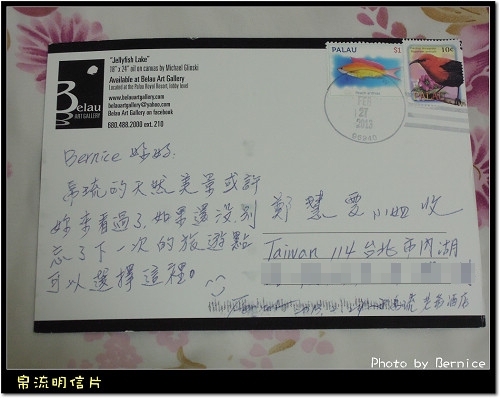 "Jellyfish Lake"
18" x 24" oil on canvas by Michael Glinski
Available at Belau Art Gallery
Located at the Palau Royal Resort, lobby level
www.belauartgallery.com
belauartgallery@yahoo.com
Belau Art Gallery on facebook
680.488.2000 ext. 210
Belau
ART GALLERY
PALAU
$1
10¢
FEB
27
2013
96940
Bernice 妳好:
帛流的天然美景或許
妳來看過了,如果還沒別
忘了下一次的旅遊點
可以選擇這裡。
鄭慧雯 小姐 收
Taiwan 114 台北市內湖
帛流 老爺酒店
Photo by Bernice
帛流明信片